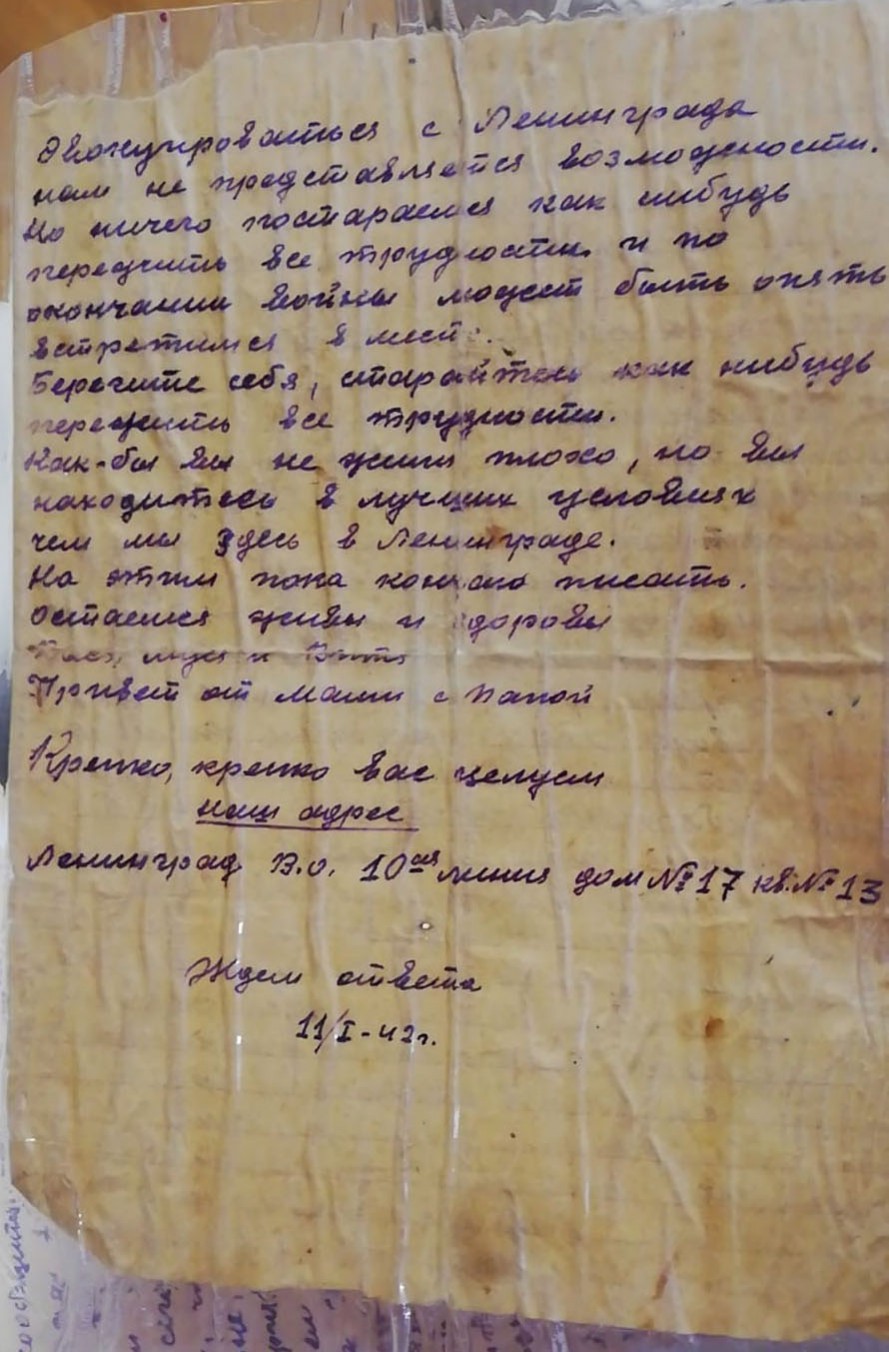 Эвакуироваться с Ленинграда
нам не представляется возможности.
Но ничего постараемся как нибудь
пережить все трудности и по
окончании войны может быть опять
встретимся в мест
Берегите себя, старайтесь как нибудь
пережить все трудности.
Как-бы вы не жили плохо, но вы
находитесь в лучших условиях
чем мы здесь в Ленинграде.
На этим пока кончаю писать.
Остаемся живы и здоровы
Муся и Витя
Привет от мамы с папой
Крепко, крепко вас целуем
наш адрес
Ленинград В.О. 10ая линия дом №17 кв. №13
Ждем ответа
11/I-42г.